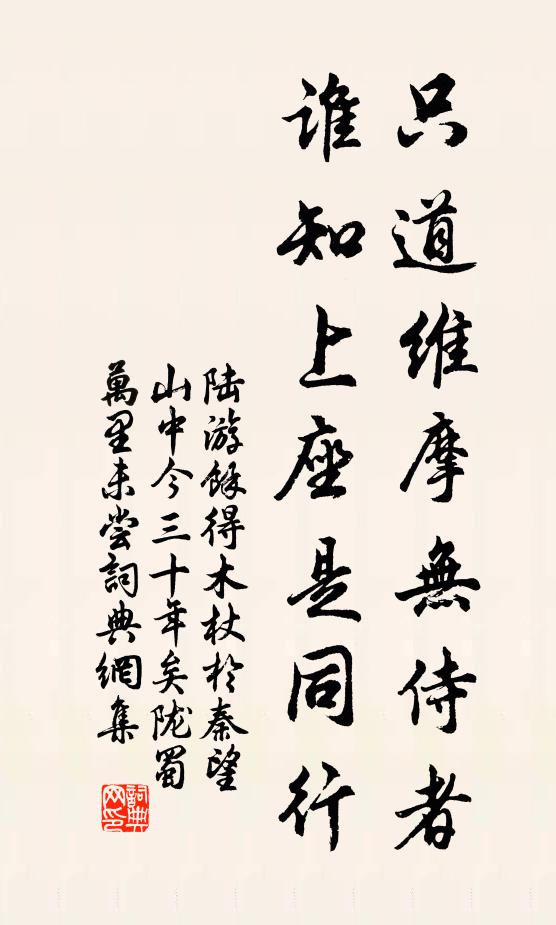 只道維摩無侍者
誰知上座是同行
陸游餘得木杖於秦望
山中今三十年矣陇蜀
萬里未嘗詞典網集
詞典
网印